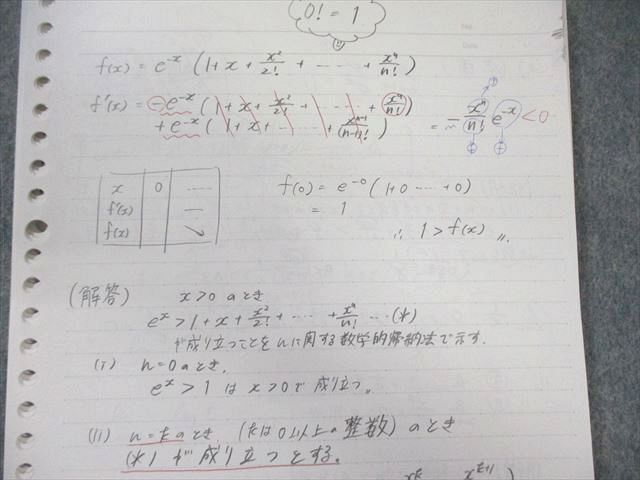 0! = 1
f(x) = e^{-x} (1+x+x²/2! + …… + xⁿ/n!)
f'(x) = -e^{-x} (1+x+x²/2! + …… + xⁿ/n!)
+e^{-x} (1+x+ …… + x^{n-1}/(n-1)!) = -xⁿ/n! e^{-x} < 0
x 0 ……
f'(x) −
f(x) ↘
f(0) = e^{-0} (1+0 …… +0)
= 1
∴ 1 > f(x) 〃
(解答) x>0 のとき
e^x > 1+x+x²/2!+ …… +xⁿ/n! …(*)
が成り立つことをnに関する数学的帰納法で示す.
(i) n=0のとき,
e^x > 1 は x>0で成り立つ.
(ii) n=kのとき, (kは0以上の整数) のとき
(*) が成り立つとする.
x^k x^{k+1}